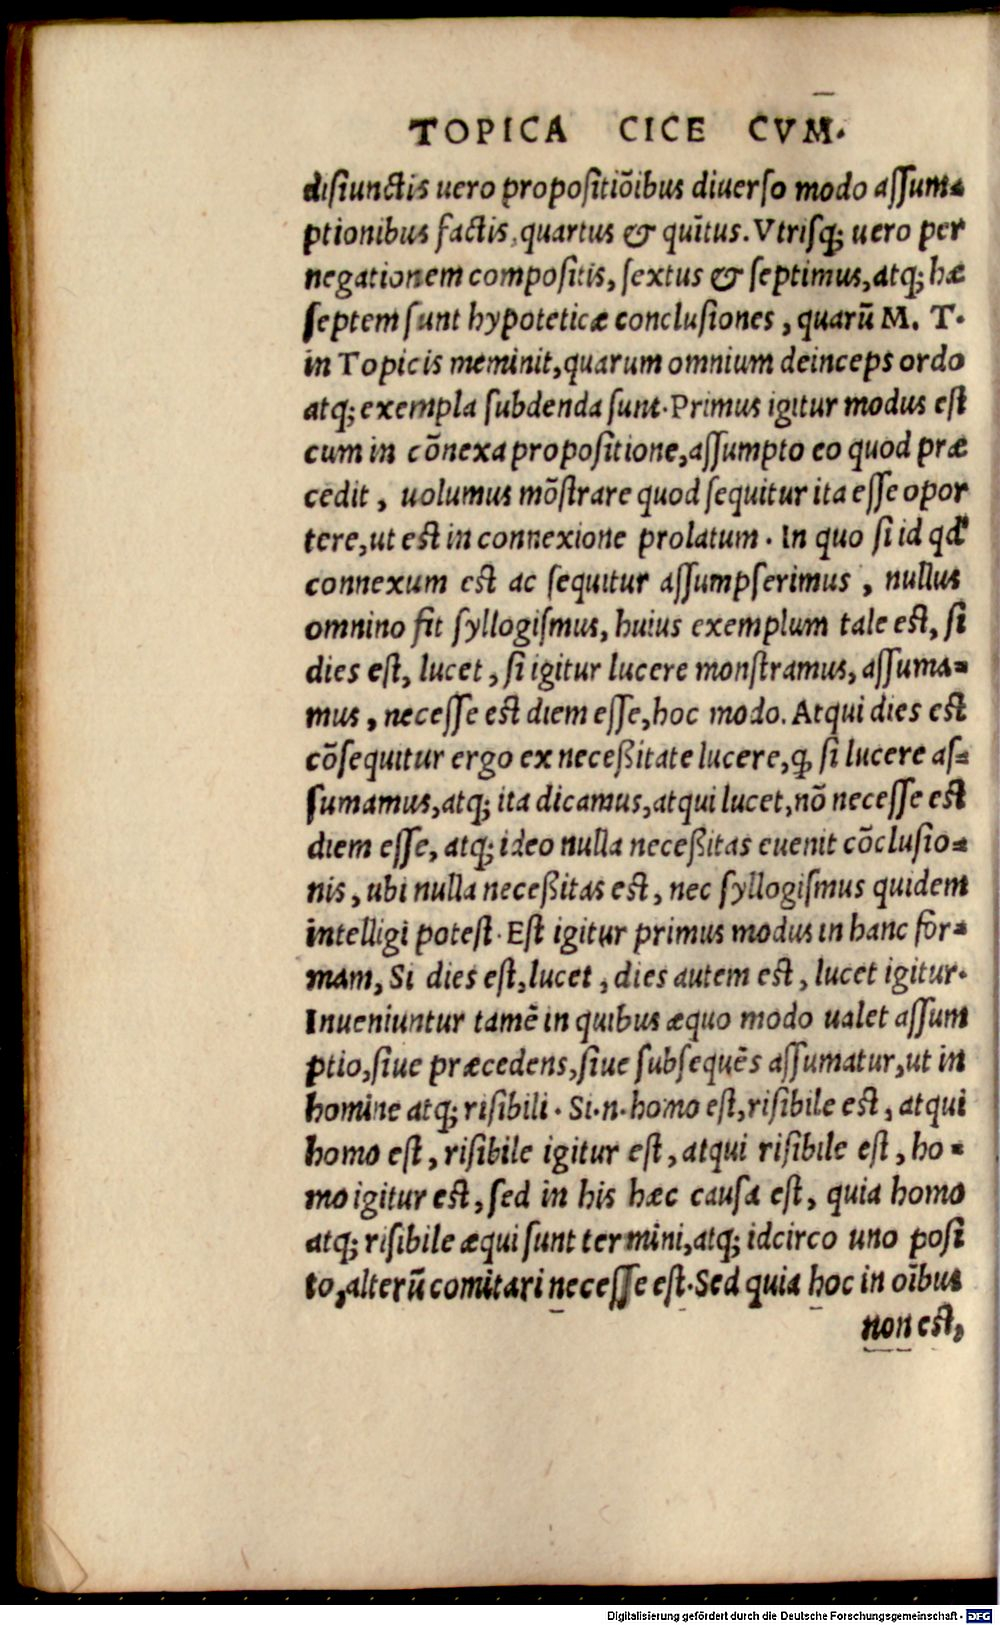 TOPICA CICE CVM.
disiunctis uero propositiõibus diuerso modo assum-
ptionibus factis, quartus & quĩtus. Vtrisq; uero per
negationem compositis, sextus & septimus, atq; hæ
septem sunt hypoteticæ conclusiones, quarũ M. T.
in Topicis meminit, quarum omnium deinceps ordo
atq; exempla subdenda sunt. Primus igitur modus est
cum in cõnexa propositione, assumpto eo quod præ
cedit, uolumus mõstrare quod sequitur ita esse opor
tere, ut est in connexione prolatum. In quo si id qd'
connexum est ac sequitur assumpserimus, nullus
omnino fit syllogismus, huius exemplum tale est, si
dies est, lucet, si igitur lucere monstramus, assuma-
mus, necesse est diem esse, hoc modo. Atqui dies est
cõsequitur ergo ex neceßitate lucere, ꝙ si lucere as-
sumamus, atq; ita dicamus, atqui lucet, nõ necesse est
diem esse, atq; ideo nulla neceßitas euenit cõclusio-
nis, ubi nulla neceßitas est, nec syllogismus quidem
intelligi potest. Est igitur primus modus in hanc for-
mam, Si dies est, lucet, dies autem est, lucet igitur.
Inueniuntur tamẽ in quibus æquo modo ualet assum
ptio, siue præcedens, siue subsequẽs assumatur, ut in
homine atq; risibili. Si.n.homo est, risibile est, atqui
homo est, risibile igitur est, atqui risibile est, ho-
mo igitur est, sed in his hæc causa est, quia homo
atq; risibile æqui sunt termini, atq; idcirco uno posi
to, alterũ comitari necesse est. Sed quia hoc in oĩbus
non est,
Digitalisierung gefördert durch die Deutsche Forschungsgemeinschaft - DFG